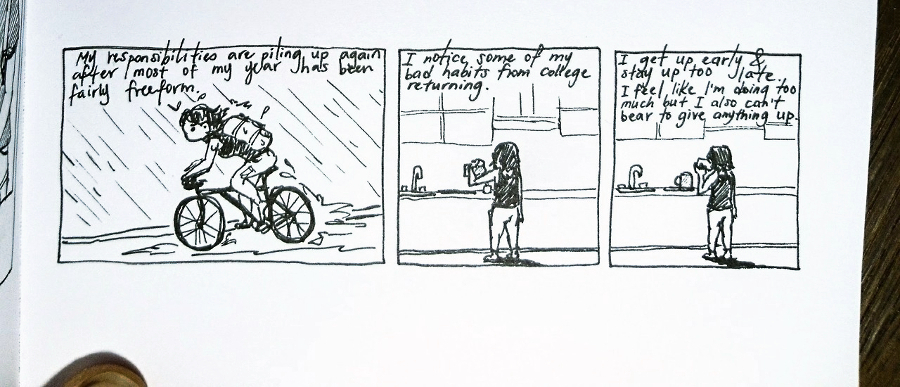 My responsibilities are piling up again
after most of my year has been
fairly freeform.
I notice some of my
bad habits from college
returning.
I get up early &
stay up too late.
I feel like I'm doing too
much but I also can't
bear to give anything up.